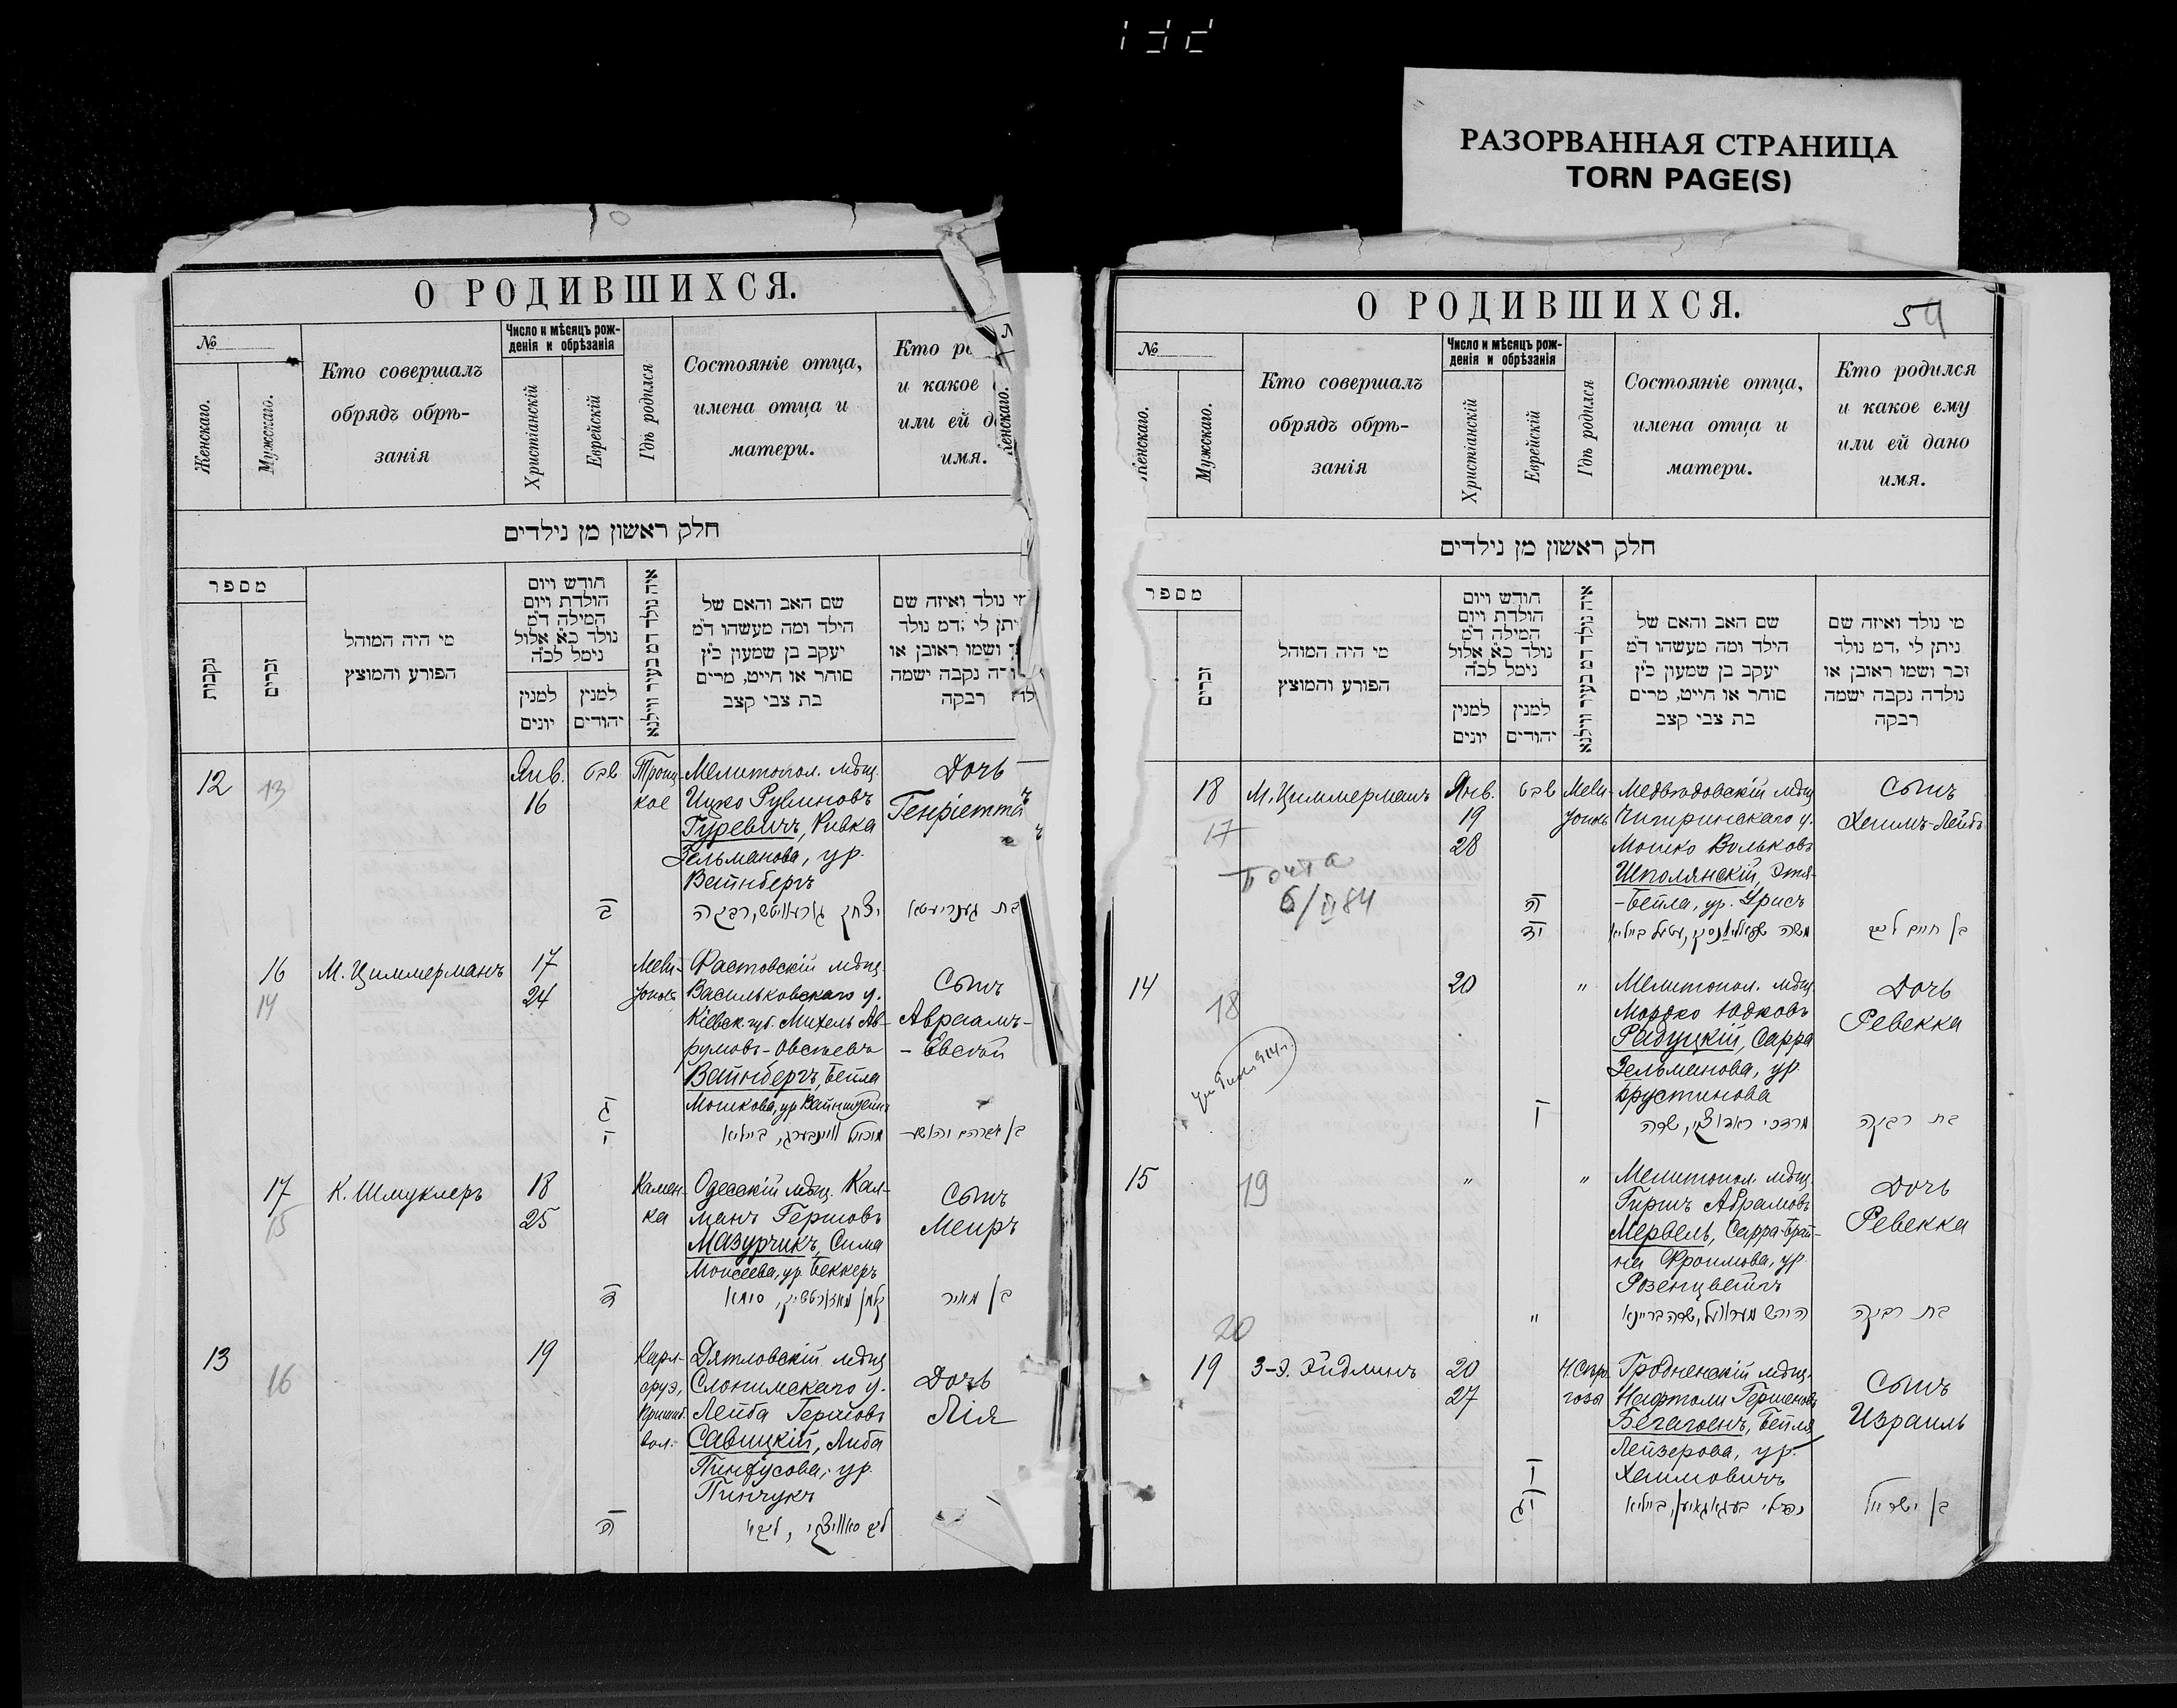 РАЗОРВАННАЯ СТРАНИЦА
TORN PAGE(S)
О РОДИВШИХСЯ.
№
Женскаго.
Мужскаго.
Кто совершалъ
обрядъ обрѣ-
занія
Число и мѣсяцъ рож-
денія и обрѣзанія
Христіанскій
Еврейскій
Гдѣ родился
Состояніе отца,
имена отца и
матери.
Кто
и какое
или ей
имя.
חלק ראשון מן נילדים
מספר
נקבות
זכרים
מי היה המוהל
הפורע והמוצץ
חודש ויום
הולדת ויום
המילה ד״מ
נולד כ״א אלול
נימל לכ״ה
למנין
יונים
למנין
יהודים
איה נולד דמ בעיר ווילנא
שם האב והאם של
הילד ומה מעשהו ד״מ
יעקב בן שמעון כ״ץ
סוחר או חייט, מרים
בת צבי קצב
נולד ואיזה שם
לי ;דמ נולד
ושמו ראובן או
נקבה ישמה
רבקה
12
13
Янв.
16
שבט
Троиц-
кое
Мелитопол. мѣщ.
Ицко Рувиновъ
Гуревичъ, Ривка
Зельманова, ур.
Вайнбергъ
Дочь
Генріетта
ב
יצחק גורעוויטש, רבקה
בת גענריעטא
16
14
М. Циммерманъ
17
24
Мели-
тополь
Фастовскій мѣщ.
Васильковскаго у.
Кіевск. губ. Михель Ав-
румовъ-Овсеевъ
Вайнбергъ, Бейла
Мошкова, ур. Вайнштейнъ
Сынъ
Авраамъ-
-Евсей
ג
י
מיכאל וויינבערג, ביילא
בן אברהם יהושע
17
15
К. Шмуклеръ
18
25
Камен-
ка
Одесскій мѣщ. Кал-
манъ Гершовъ
Мазурчикъ, Сима
Моисеева, ур. Беккеръ
Сынъ
Меиръ
ד
קלמן מאזורטשיק, סימא
בן מאיר
13
16
19
Карл-
сруэ,
вол.
Дятловскій мѣщ.
Слонимскаго у.
Лейба Гершовъ
Савицкій, Либа
Пинхусова, ур.
Пинчукъ
Дочь
Лія
ה
ליב סאוויצקי, ליבא
О РОДИВШИХСЯ.
54
№
Женскаго.
Мужскаго.
Кто совершалъ
обрядъ обрѣ-
занія
Число и мѣсяцъ рож-
денія и обрѣзанія
Христіанскій
Еврейскій
Гдѣ родился
Состояніе отца,
имена отца и
матери.
Кто родился
и какое ему
или ей дано
имя.
חלק ראשון מן נילדים
מספר
זכרים
מי היה המוהל
הפורע והמוצץ
חודש ויום
הולדת ויום
המילה ד״מ
נולד כ״א אלול
נימל לכ״ה
למנין
יונים
למנין
יהודים
איה נולד דמ בעיר ווילנא
שם האב והאם של
הילד ומה מעשהו ד״מ
יעקב בן שמעון כ״ץ
סוחר או חייט, מרים
בת צבי קצב
מי נולד ואיזה שם
ניתן לי ,דמ נולד
זכר ושמו ראובן או
נולדה נקבה ישמה
רבקה
18
17
М. Циммерманъ
Почта
6/II 84
Янв.
19
28
שבט
Мели-
тополь
Медвѣдовскій мѣщ.
Чигиринскаго у.
Мошко Вольковъ
Шполянскій, Этя-
-Бейла, ур. Урисъ
Сынъ
Хаимъ-Лейбъ
ה
יד
בן חיים ליב
14
18
20
"
Мелитопол. мѣщ.
Мордко Юдковъ
Радуцкій, Сарра
Зельманова, ур.
Фрустинова
Дочь
Ревекка
ו
מרדכי ראדוצקי, שרה
בת רבקה
15
19
"
"
Мелитопол. мѣщ.
Гиршъ Абрамовъ
Мервель, Сарра-Брай-
на Фроимова, ур.
Розенцвейгъ
Дочь
Ревекка
"
הירש מערוועל, שרה בריינא
בת רבקה
20
19
З-Э. Эйдлинъ
20
27
Н. Сѣро-
гозы
Гродненскій мѣщ.
Нафтоли Гершеновъ
Бегагоенъ, Бейля
Лейзерова, ур.
Хаимовичъ
Сынъ
Израиль
ו
יג
נפתלי בעגאגאיען, ביילא
בן ישראל